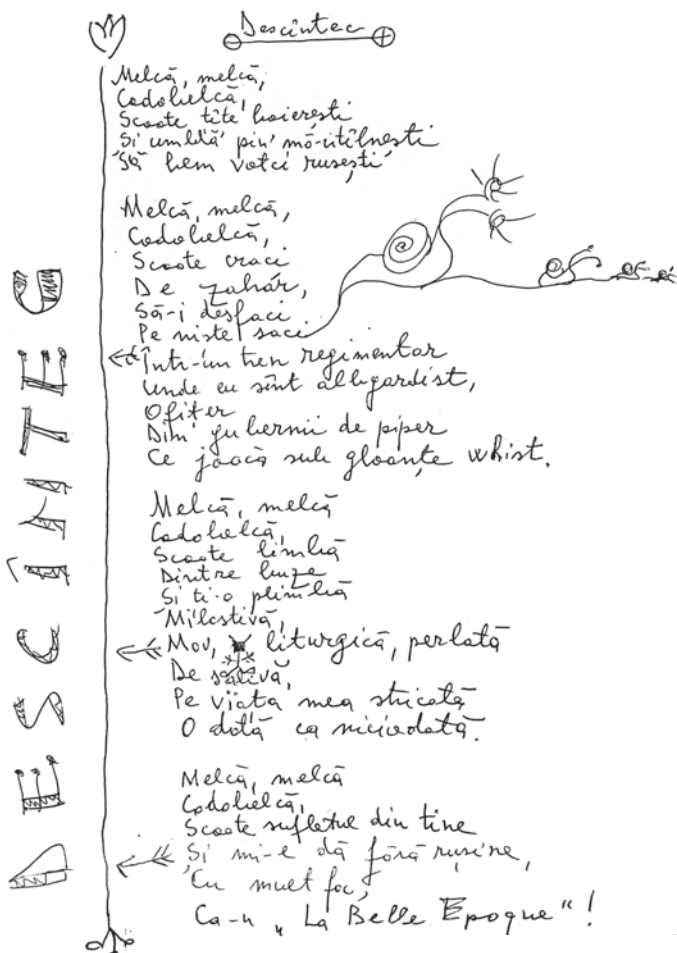 Descîntec
Melcă, melcă,
Codobelcă,
Scoate țîțe boierești
Și umblă pin' mă-ntîlnești
Să bem votci rusești
Melcă, melcă,
Codobelcă,
Scoate craci
De zahăr,
Să-i desfaci
Pe niște saci
Într-un tren regimentar
Unde eu sînt albgardist,
Ofițer
Din gubernii de piper
Ce joacă sub gloanțe whist.
Melcă, melcă
Codobelcă,
Scoate limbă
Dintre buze
Și ți-o plimbă
Milostivă,
Mov, liturgică, perlată
De salivă,
Pe viața mea stricată
O dată ca niciodată.
Melcă, melcă
Codobelcă,
Scoate sufletul din tine
Și mi-l dă fără rușine,
Cu mult foc,
Ca-n „La Belle Epoque"!
DESCÎNTEC